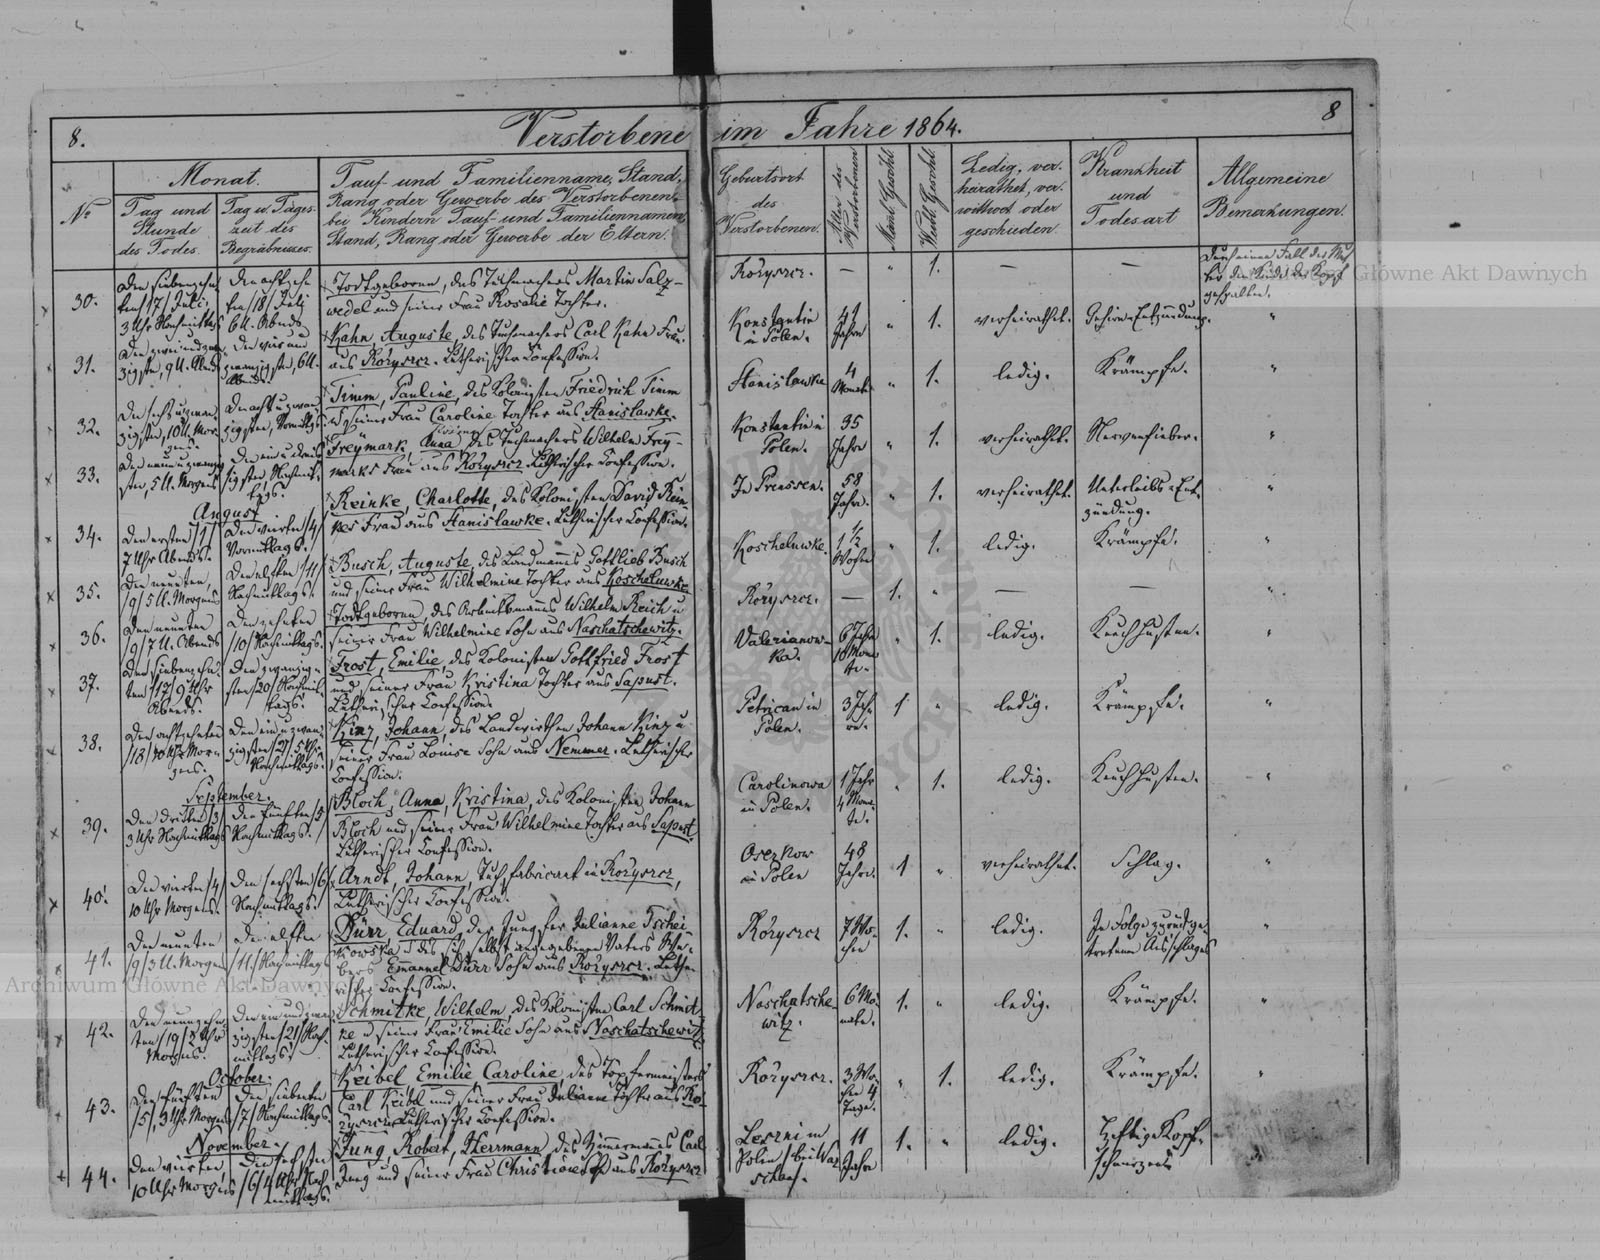 8.
Verstorbene im Jahre 1864.
8
Nº
Monat.
Tag und
Stunde
des Todes.
Tag u. Tages-
zeit des
Begräbnisses.
Tauf- und Familienname, Stand,
Rang oder Gewerbe des Verstorbenen,
bei Kindern Tauf- und Familiennamen,
Stand, Rang oder Gewerbe der Eltern.
Geburtsort
des
Verstorbenen.
Alter der
Verstorbenen
Männl. Geschl.
Weibl. Geschl.
Ledig, ver-
heirathet, ver-
wittwet oder
geschieden
Krankheit
und
Todesart
Allgemeine
Bemerkungen.
30.
Den siebenzehn-
ten /17/ Juli,
3 Uhr Nachmittags
Den achtzehn-
ten /18/ Juli
6 U. Abends
Todtgeboren, des Tuchmachers Martin Salz-
wedel und seiner Frau Rosalie Tochter.
Rożyszcz.
—
"
1.
—
—
Durch einen Fall der Mut-
ter dem Kinde der Kopf
gespalten.
31.
Den zwei und zwan-
zigsten, 9 U. Abends
Den vier und
zwanzigsten, 6 U.
Abends.
Kahn, Auguste, des Tuchmachers Carl Kahn Frau
aus Rożyszcz. Lutherischer Confession.
Konstantin
in Polen.
41
Jahre
"
1.
verheirathet.
Gehirn-Entzündung.
"
32.
Den sechs u. zwan-
zigsten, 10 U. Mor-
gens.
Den acht u. zwan-
zigsten, Vormittags.
Timm, Pauline, des Kolonisten Friedrich Timm
u. seiner Frau Caroline Tochter aus Stanislawke.
Stanislawke
4
Monate
"
1.
ledig.
Krämpfe.
"
33.
Den neun u. zwanzig-
sten, 5 U. Morgens
Den ein u. dreis-
sigsten, Nachmit-
tags.
Freymark, Anna, des Tuchmachers Wilhelm Frey-
marks Frau aus Rożyszcz Lutherischer Confession.
Konstantin in
Polen.
35
Jahre
"
1.
verheirathet.
Nervenfieber.
"
August
34.
Den ersten /1/
7 Uhr Abends.
Den vierten /4/
Vormittags.
Reinke, Charlotte, des Kolonisten David Rein-
kes Frau aus Stanislawke. Lutherischer Confession.
In Preussen.
58
Jahre.
"
1.
verheirathet.
Unterleibs-Ent-
zündung.
"
35.
Den neunten,
/9/ 5 U. Morgens
Den elften /11/
Nachmittags.
Busch, Auguste, des Landmannes Gottlieb Busch
und seiner Frau Wilhelmine Tochter aus Koscheluwke
Koscheluwke.
1 1/2
Wochen
"
1.
ledig.
Krämpfe.
"
36.
Den neunten
/9/ 7 U. Abends
Den zehnten
/10/ Nachmittags.
Todtgeboren, des Arbeitsmannes Wilhelm Reich u.
seiner Frau Wilhelmine Sohn aus Naschatschewitz.
Rożyszcz.
—
1.
"
—
—
"
37.
Den siebenzehn-
ten /17/ 9 Uhr
Abends.
Den zwanzig-
sten /20/ Nachmit-
tags.
Frost, Emilie, des Kolonisten Gottfried Frost
und seiner Frau Kristina Tochter aus Sapust.
Lutherischer Confession.
Valerianow-
ka.
6 Jahre
10 Mona-
te.
"
1.
ledig.
Keuchhusten.
"
38.
Den achtzehnten
/18/ 10 Uhr Mor-
gens.
Den ein u. zwan-
zigsten /21/ 5 Uhr
Nachmittags.
Kinz, Johann, des Landwirthen Johann Kinz u.
seiner Frau Louise Sohn aus Nemmer. Lutherischer
Confession.
Petrican in
Polen.
3 Jah-
re.
1
"
ledig.
Krämpfe.
"
September.
39.
Den dritten /3/
3 Uhr Nachmittags
Den fünften /5/
Nachmittags.
Bloch, Anna, Kristina, des Kolonisten Johann
Bloch und seiner Frau Wilhelmine Tochter aus Sapust.
Lutherischer Confession.
Carolinowa
in Polen.
1 Jahr
4 Mona-
te.
"
1.
ledig.
Keuchhusten.
"
40.
Den vierten /4/
10 Uhr Morgens.
Den sechsten /6/
Nachmittags.
Arndt, Johann, Tuchfabricant in Rożyszcz,
Lutherischer Confession.
Oserkow
in Polen
48
Jahre.
1
"
verheirathet.
Schlag.
"
41.
Den neunten
/9/ 3 U. Morgens
Den elften
/11/ Nachmittags
Dürr Eduard, der Jungfer Julianne Tschei-
kowska u. des sich selbst angegebenen Vaters
Emanuel Dürr Sohn aus Rożyszcz. Luthe-
rischer Confession.
Rożyszcz
7 Wo-
chen
1.
"
ledig.
In Folge zurückge-
tretenen Ausschlages
"
42.
Den neunzehn-
ten /19/ 2 Uhr
Morgens.
Den ein und zwan-
zigsten /21/ Nach-
mittags.
Schmitke, Wilhelm, des Kolonisten Carl Schmit-
ke u. seiner Frau Emilie Sohn aus Naschatschewitz.
Lutherischer Confession.
Naschatsche-
witz.
6 Mo-
nate.
1.
"
ledig.
Krämpfe.
"
October.
43.
Den fünften
/5/, 3 Uhr Morgens
Den siebenten
/7/ Nachmittags.
Keibel Emilie Caroline, des Töpfermeisters
Carl Keibel und seiner Frau Julianne Tochter aus Ro-
żyszcz. Lutherischer Confession.
Rożyszcz.
3 Wo-
chen 4
Tage.
"
1.
ledig.
Krämpfe.
"
November.
44.
Den vierten
10 Uhr Morgens
Den sechsten
/6/ 4 Uhr Nach-
mittags.
Jung, Robert, Herrmann, des Zimmermannes Carl
Jung und seiner Frau Christiane aus Rożyszcz
Leszni in
Polen, bei War-
schau.
11
Jahre
1.
"
ledig.
Heftige Kopf-
schmerzen
Główne Akt Dawnych
Archiwum Główne Akt Dawnych